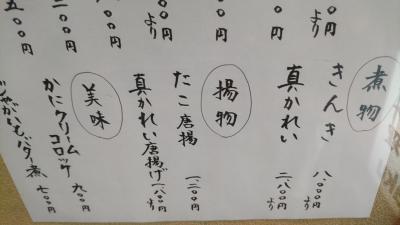 〇〇円
より
煮物
きんき 八〇〇〇円より
真かれい 二、八〇〇円より
〇〇円
揚物
たこ唐揚 一、二〇〇円
真かれい唐揚げ 一、八〇〇円より
〇〇円
より
美味
二〇〇円
かにクリームコロッケ 九〇〇円
五〇〇円
じゃがいもバター煮 七〇〇円